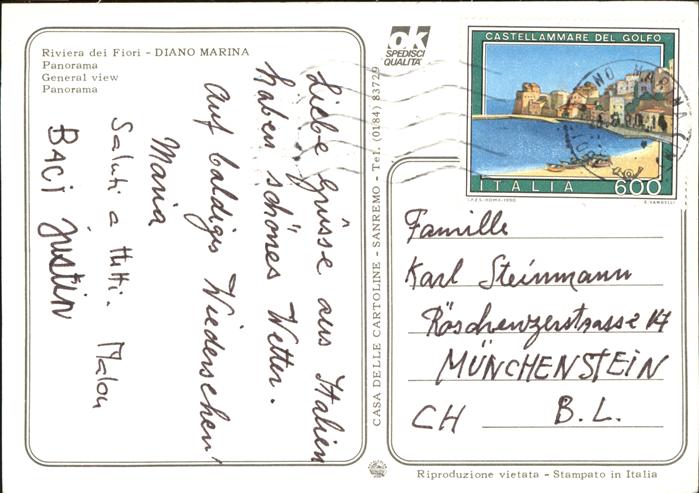 Riviera dei Fiori - DIANO MARINA
Panorama
General view
Panorama
ok
SPEDISCI
QUALITA'
Liebe Grüsse aus Italien
haben schönes Wetter.
Auf baldiges Wiedersehen
Maria
Saluti a tutti. Malou
BACI Justin
CASA DELLE CARTOLINE - SANREMO - Tel. (0184) 83729
CASTELLAMMARE DEL GOLFO
ITALIA 600
I.P.Z.S.-ROMA-1990 E. VANGELLI
Familie
Karl Steinmann
MÜNCHENSTEIN
CH B.L.
Riproduzione vietata - Stampato in Italia